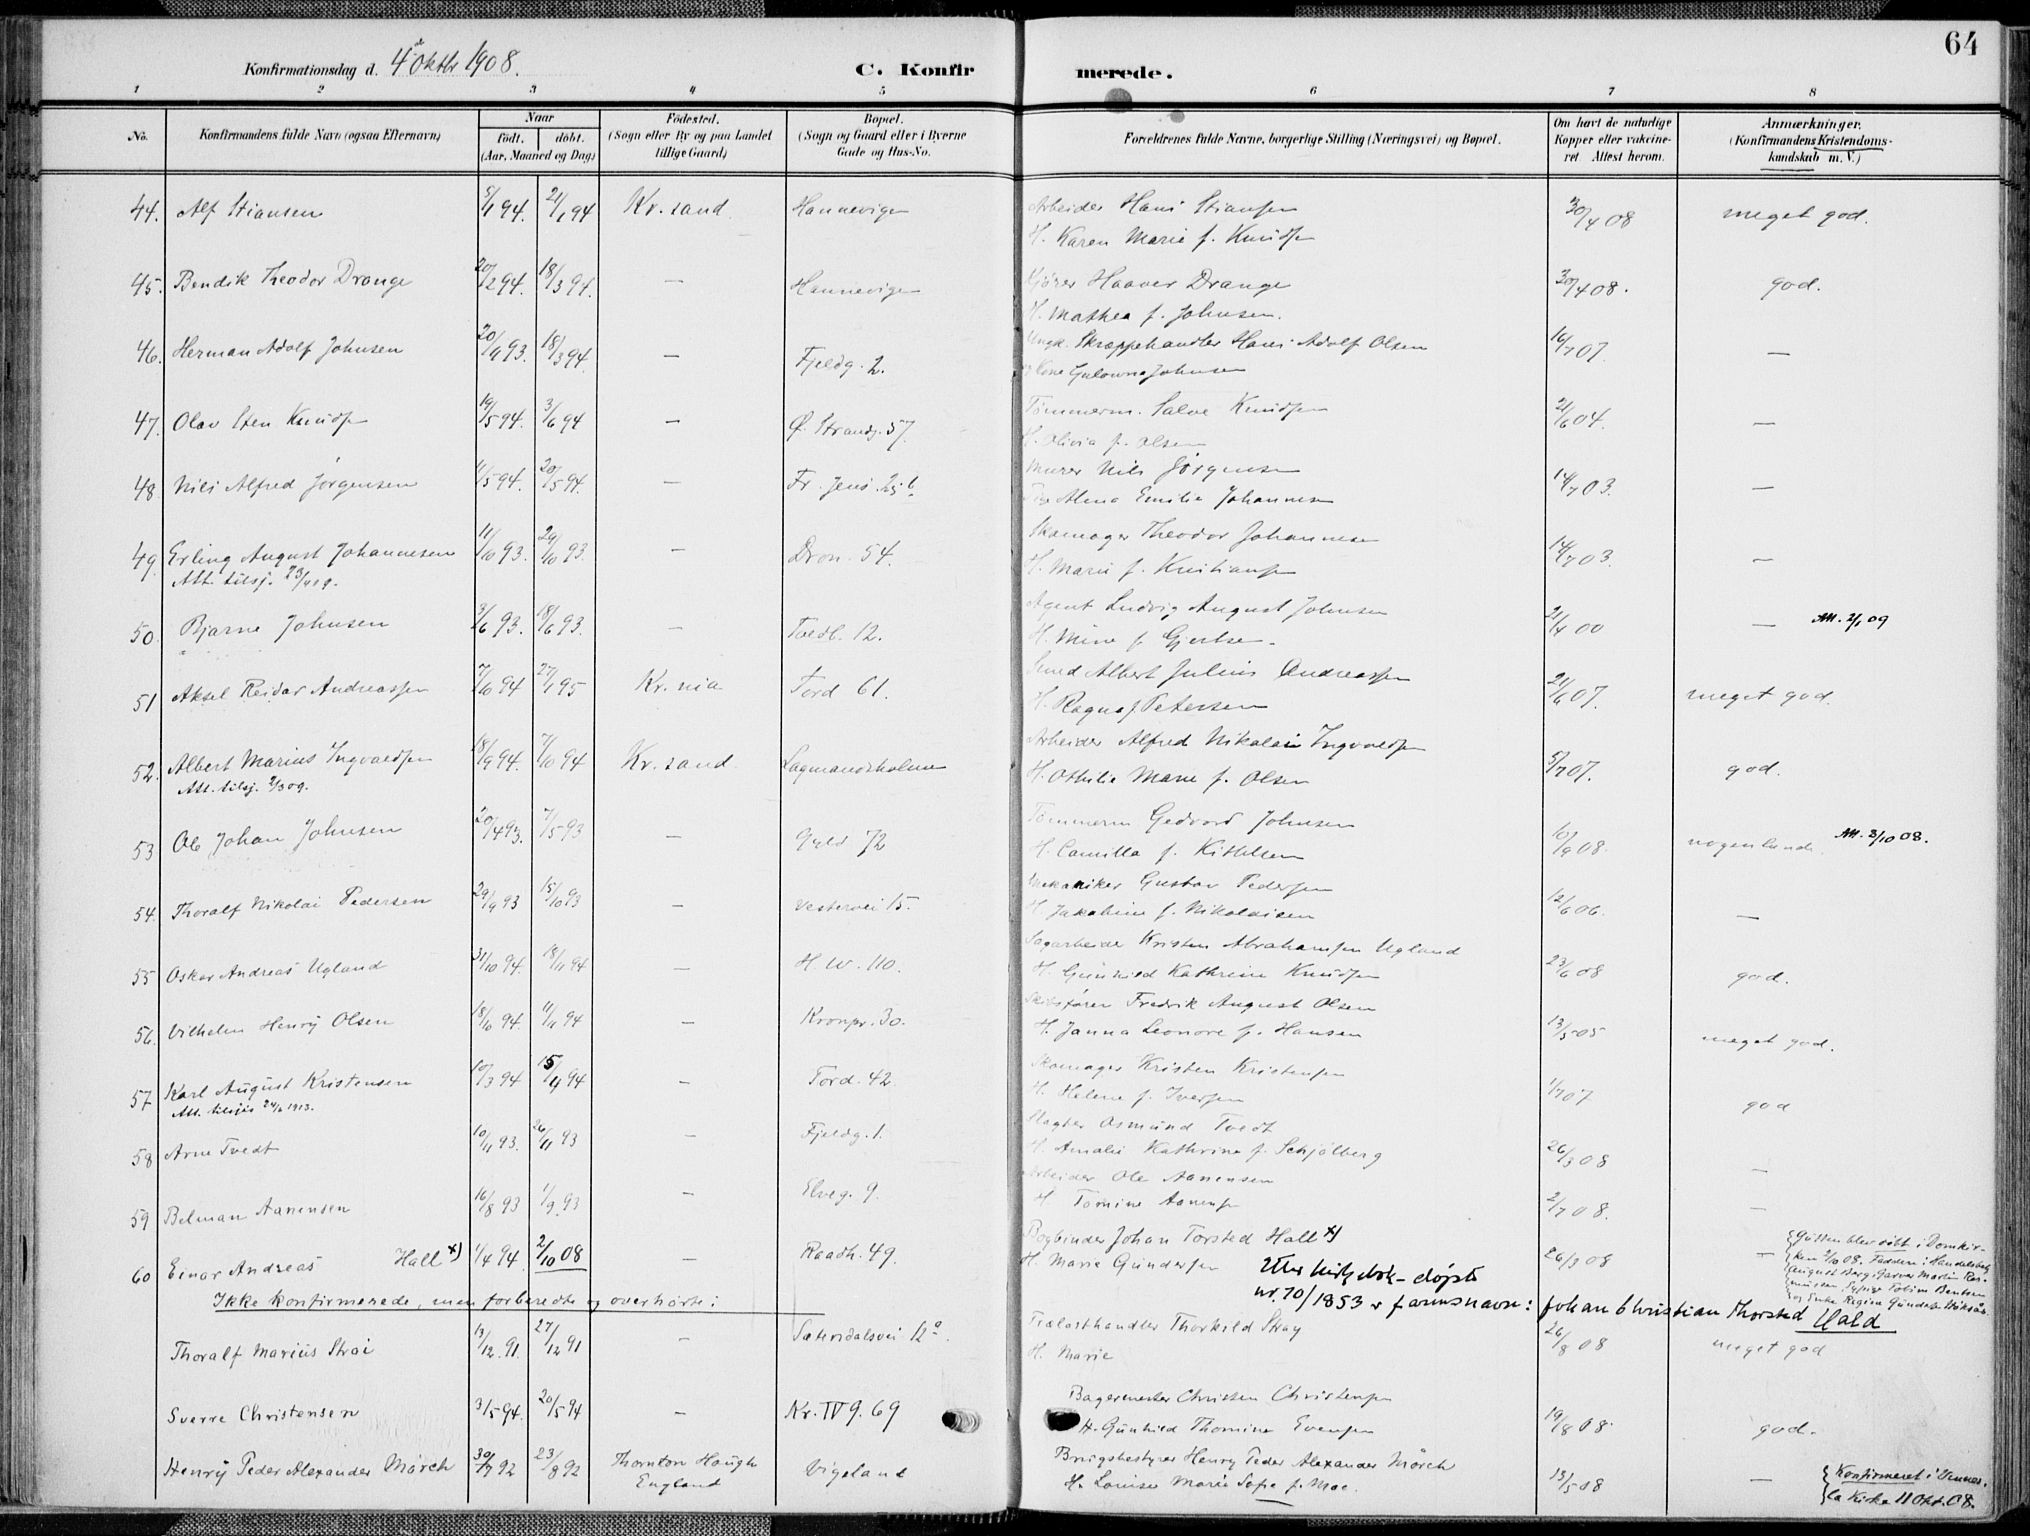 64
Konfirmationsdag d. 4de Oktbr 1908.
C. Konfirmerede.
1 2 3 4 5 6 7 8
No.
Konfirmandens fulde Navn (ogsaa Efternavn)
Naar
født. døbt.
(Aar, Maaned og Dag)
Fødested.
(Sogn eller By og paa Landet
tillige Gaard)
Bopæl.
(Sogn og Gaard eller i Byerne
Gade og Hus-No.
Forældrenes fulde Navne, borgerlige Stilling (Næringsvei) og Bopæl.
Om havt de naturlige
Kopper eller vakcine-
ret. Attest herom.
Anmærkninger.
(Konfirmandens Kristendoms-
kundskab m. V.)
44. Alf Stiansen 5/1 94. 21/1 94 Kr.sand. Hannevigen Arbeider Hans Stiansen 30/4 08 meget god.
H. Karen Marie f. Knudsen
45. Bendik Theodor Drange 20/2 94. 18/3 94. — Hannevigen Kjører Haaver Drange 30/4 08. god.
H. Mathea f. Johnsen.
46. Herman Adolf Johnsen 18/3 94. — Fjeldg. 2. Ungk. Skræppehandler Hans Adolf Olsen —
Johnsen
47. Olav Sten Knudsen 19/5 94. 3/6 94 — Ø. Strandg. 37. Tømmerm. Salve Knudsen 21/6 04. —
H. Olivia f. Olsen
48 Nils Alfred Jörgensen 11/5 94. 20/5 94. — Murer Nils Jörgensen 14/7 03. —
Alma Emilie Johannesen
49. Erling August Johannesen 11/10 93. 29/10 93. — Dron. 54. Skomager Theodor Johannesen 14/7 03. —
Att. tilsj. H. Marie f. Kristiansen
50. Bjarne Johnsen 3/6 93. 18/6 93. — Tordb. 12. Agent Ludvig August Johnsen 21/4 00 — Att. 2/1 09
H. Mine f. Gjertsen.
51 Aksel Reidar Andreassen 7/10 94 27/1 95 Kr.nia Tord 61. Smed Albert Julius Andreassen 21/6 07. meget god.
H. Ragna f. Petersen
52. Albert Marius Ingvaldsen 18/9 94. 7/10 94 Kr.sand. Lagmandsholmen Arbeider Alfred Nikolai Ingvaldsen 5/7 07. god.
Att. tilsj. 2/3 09. H. Othilie Marie f. Olsen
53 Ole Johan Johnsen 20/4 93. 7/5 93 — Gyld 72 Tømmerm Gedvard Johnsen 10/9 08. nogenlunde. Att. 3/10 08.
H. Camilla f. Kittelsen
54. Thoralf Nikolai Pedersen 29/9 93 15/10 93 — Vestervei 15. Mekaniker Gustav Pedersen 12/6 06. —
H. Jakobine f. Nikolaisen
55 Oskar Andreas Ugland 31/10 94. 18/11 94 — H. W. 110. Sagarbeider Kristen Abrahamsen Ugland 23/6 08 god.
H. Gunhild Kathrine Knudsen
56. Vilhelm Henry Olsen 18/10 94. 11/11 94 — Kronpr. 30. Skibsfører Fredrik August Olsen 13/5 05 meget god.
H. Janna Leonore f. Hansen
57 Karl August Kristensen 10/3 94 15/4 94 — Tord. 42. Skomager Kristen Kristensen 1/7 07 god
H. Helene f. Iversen
58 Arne Tvedt 10/11 93. 26/11 93 — Fjeldg. 1. Slagter Osmund Tvedt 26/3 08 —
H. Amalie Kathrine f. Schjölberg
59 Belman Aanensen 16/8 93 1/9 93 — Elveg. 9. Arbeider Ole Aanensen 2/7 08. —
H. Tomine Aanensen
60 Einar Andreas Hall x) 1/4 94. 2/10 08 — Raadh. 49. Bogbinder Johan Torsted Hall x) 26/3 08 — Gutten blev döbt i Domkir-
ken 2/10 08. Faddere: Handelsbetj.
August Berg, Garver Martin Ras-
H. Marie Gundersen
Etter kirkebok – døpte
nr. 70/1853 er farens navn: Johan Christian Thorsted Hald
Ikke konfirmerede, men forberedte og overhørte:
Thoralf Marius Strai 13/12 91. 27/12 91 — Sætersdalsvei 12a. Trælasthandler Thorkild Stray 26/8 08 meget god
H. Marie
Sverre Christensen 3/5 94. 20/5 94 — Kr. IV g. 69 Bagermester Christen Christensen 19/8 08. god.
H. Gunhild Thomine Evensen
Henry Peder Alexander Mörch 30/7 92 23/8 92 Thornton Hough England Vigeland Brugsbestyrer Henry Peder Alexander Mörch 13/5 08 — Konfirmeret i Vennes-
la Kirke 11 Okt. 08.
H. Louise Marie Sofie f. Moe.